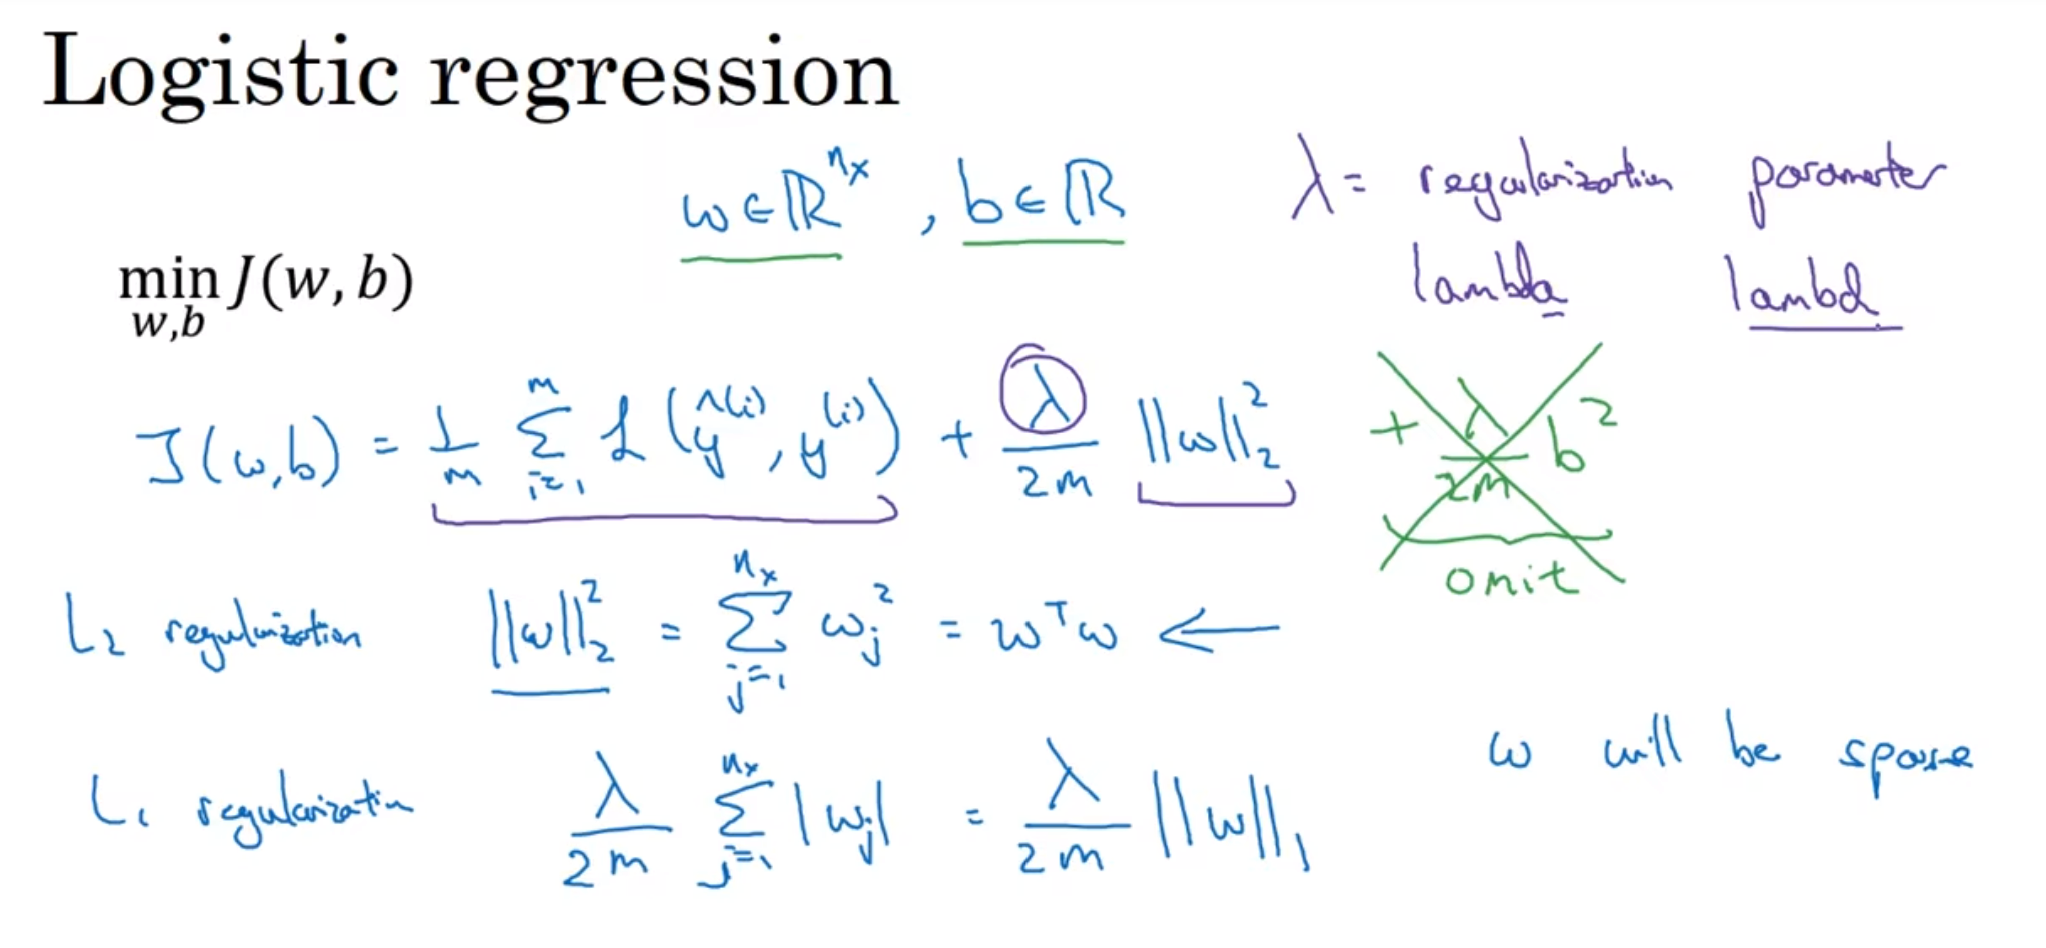 Logistic regression
w ∈ ℝ^{n_x}, b ∈ ℝ
λ = regularization parameter
lambda lambd
min_{w,b} J(w, b)
J(w,b) = 1/m Σ_{i=1}^{m} ℒ(ŷ^{(i)}, y^{(i)}) + λ/2m ||w||_2^2 + λ/2m b^2
omit
L_2 regularization ||w||_2^2 = Σ_{j=1}^{n_x} w_j^2 = w^T w ←
w will be sparse
L_1 regularization λ/2m Σ_{j=1}^{n_x} |w_j| = λ/2m ||w||_1